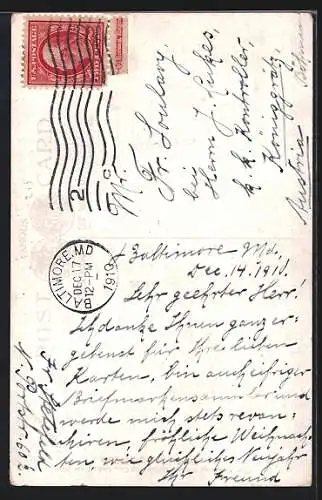 U.S. POSTAGE
Mr.
Fr.
bei
Herrn J.
k. k. Kontrollor,
Königgrätz,
Böhmen
Austria
BALTIMORE, MD.
DEC 17
12-PM
1910
B
2
Baltimore Md.
Dec. 14. 1910.
Sehr geehrter Herr!
Ich danke Ihnen ganz er-
gebenst für Ihre lieben
Karten, bin auch eifriger
Briefmarkensammler und
werde mich stets revan-
chiren, fröhliche Weihnach-
ten, wie glückliches Neujahr
Ihr Freund